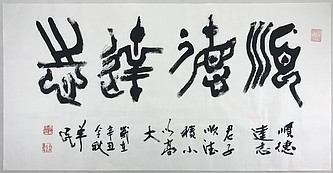 順德達志
順德
達志
君子
順德
積小
以高
大
歲在
辛丑
今秋
羊
民